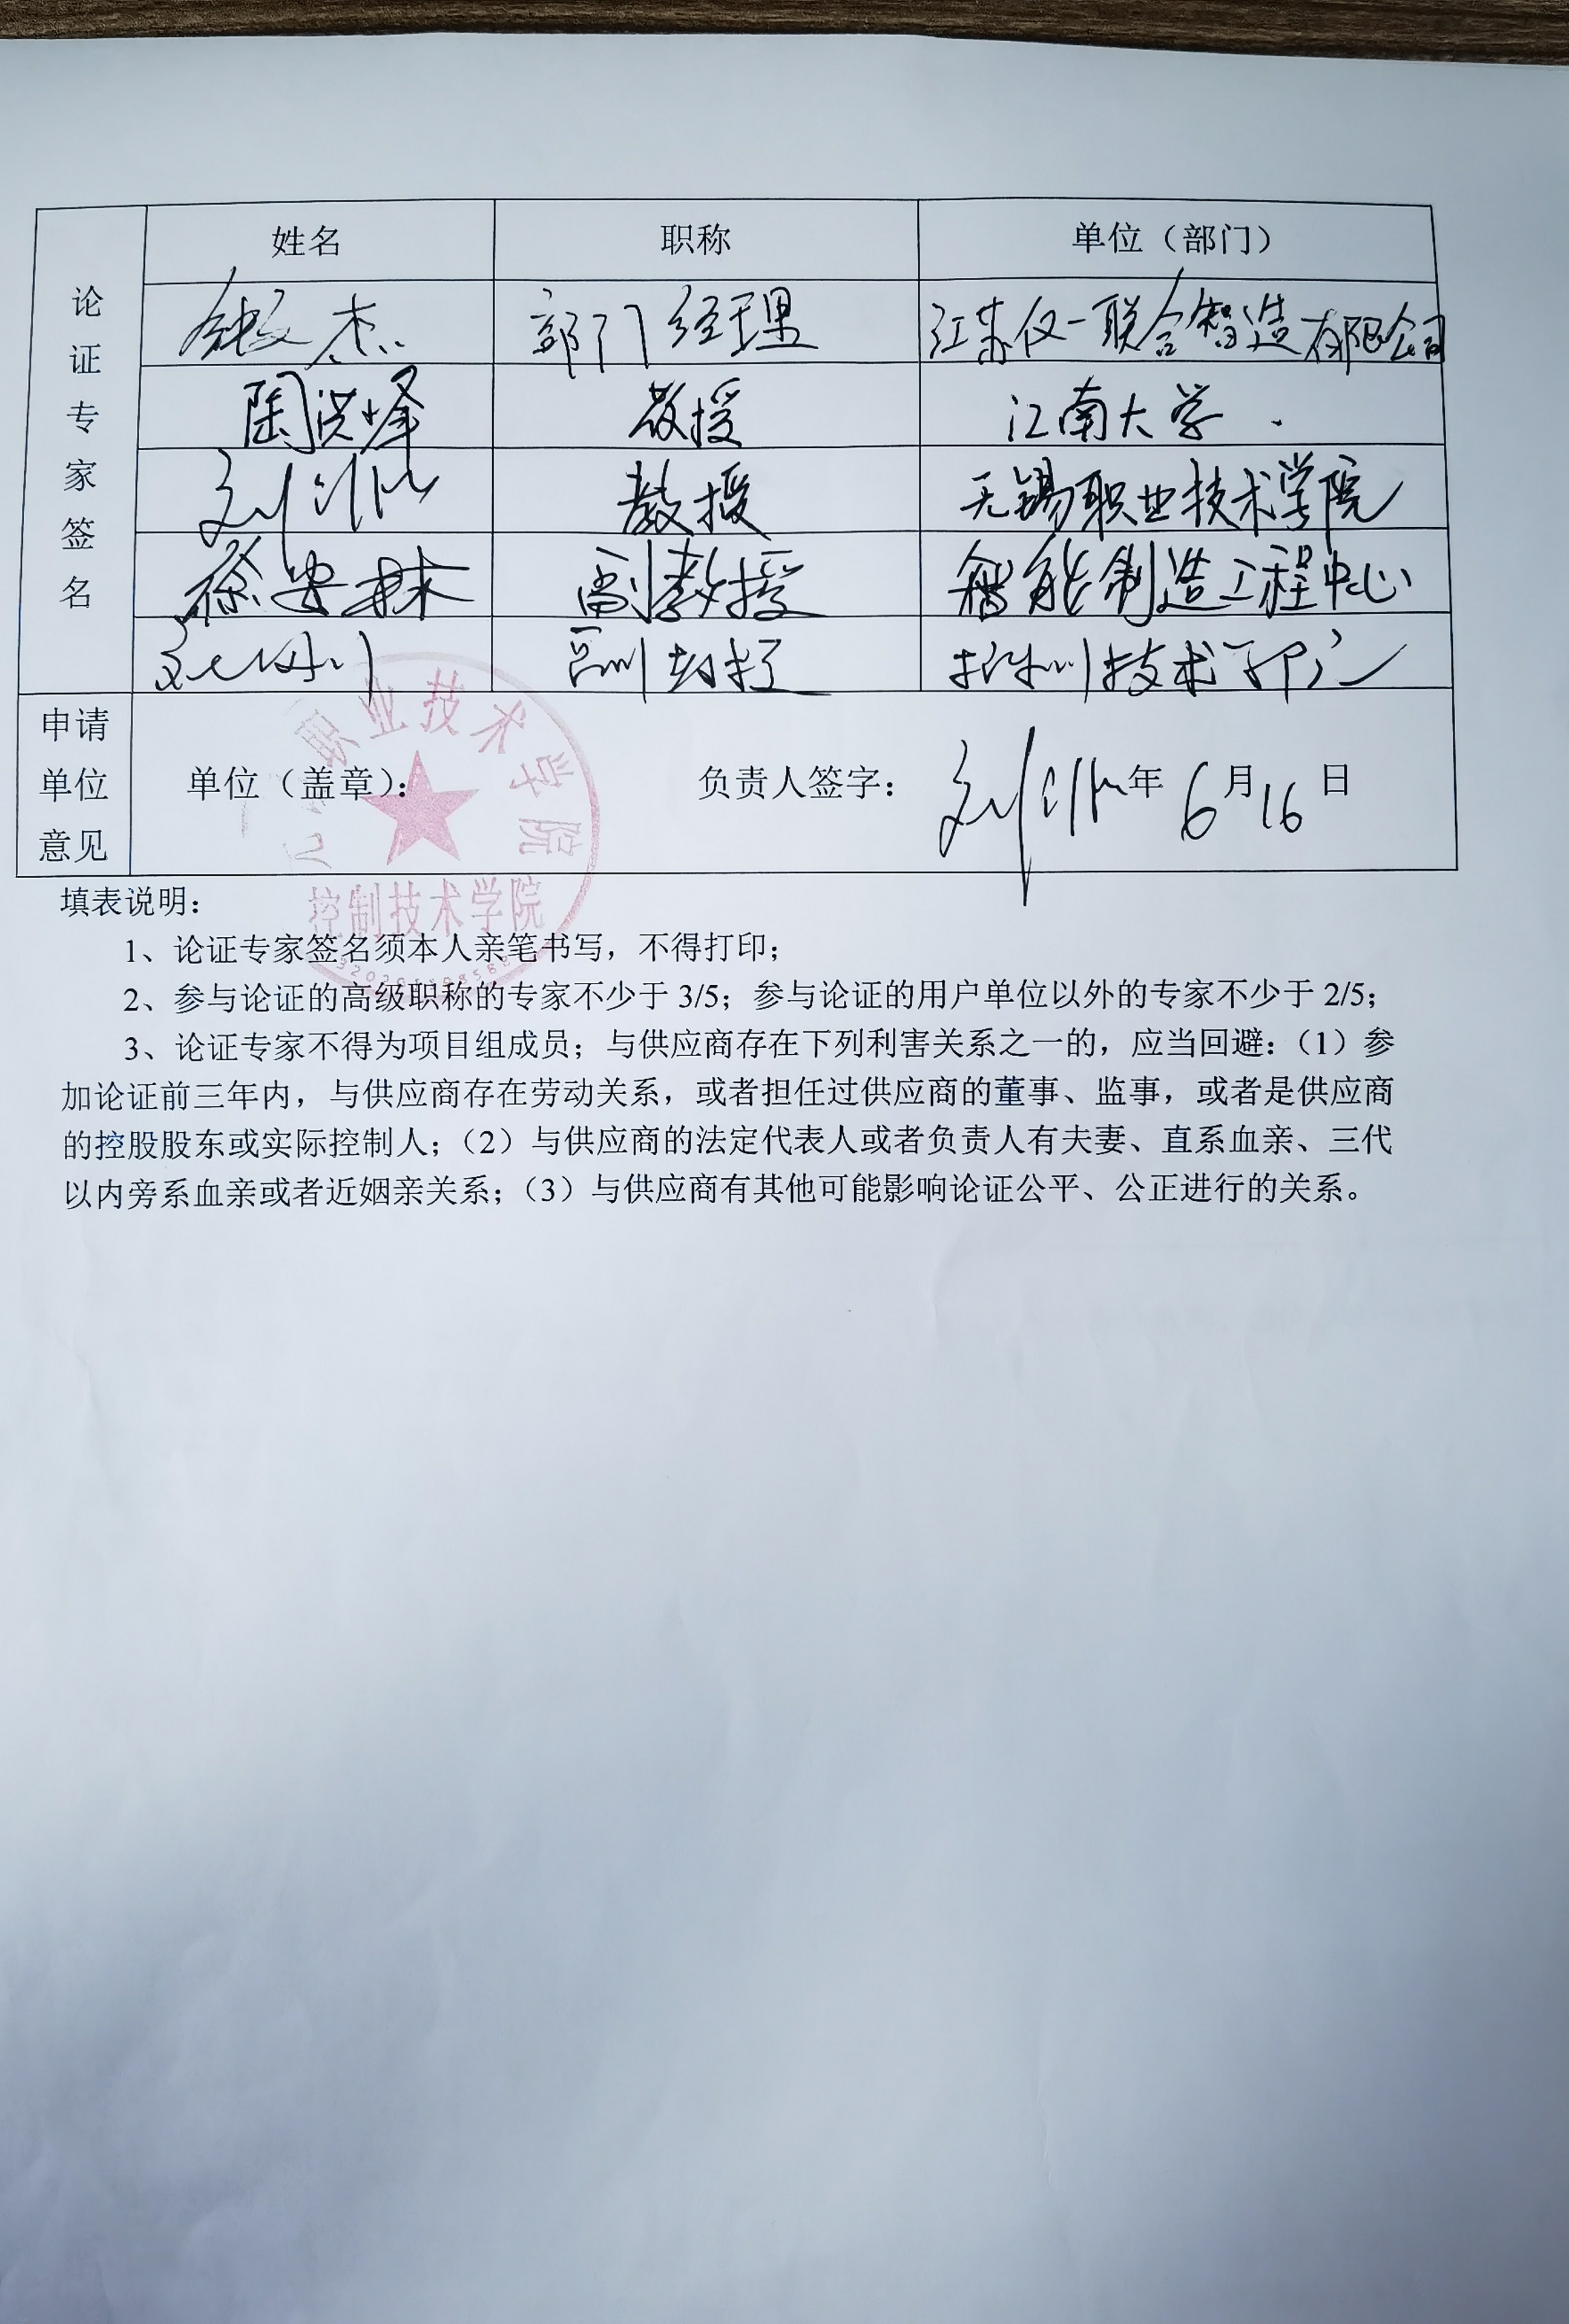 论证专家签名
姓名 职称 单位（部门）
杰 部门经理 江苏仅一联合智造有限公司
陶洪峰 教授 江南大学
刘 教授 无锡职业技术学院
徐安林 副教授 智能制造工程中心
副教授 控制技术学院
申请单位意见
单位（盖章）： 负责人签字： 刘 年 6月16日
职业技术学院
控制技术学院
填表说明：
1、论证专家签名须本人亲笔书写，不得打印；
2、参与论证的高级职称的专家不少于 3/5；参与论证的用户单位以外的专家不少于 2/5；
3、论证专家不得为项目组成员；与供应商存在下列利害关系之一的，应当回避：（1）参
加论证前三年内，与供应商存在劳动关系，或者担任过供应商的董事、监事，或者是供应商
的控股股东或实际控制人；（2）与供应商的法定代表人或者负责人有夫妻、直系血亲、三代
以内旁系血亲或者近姻亲关系；（3）与供应商有其他可能影响论证公平、公正进行的关系。